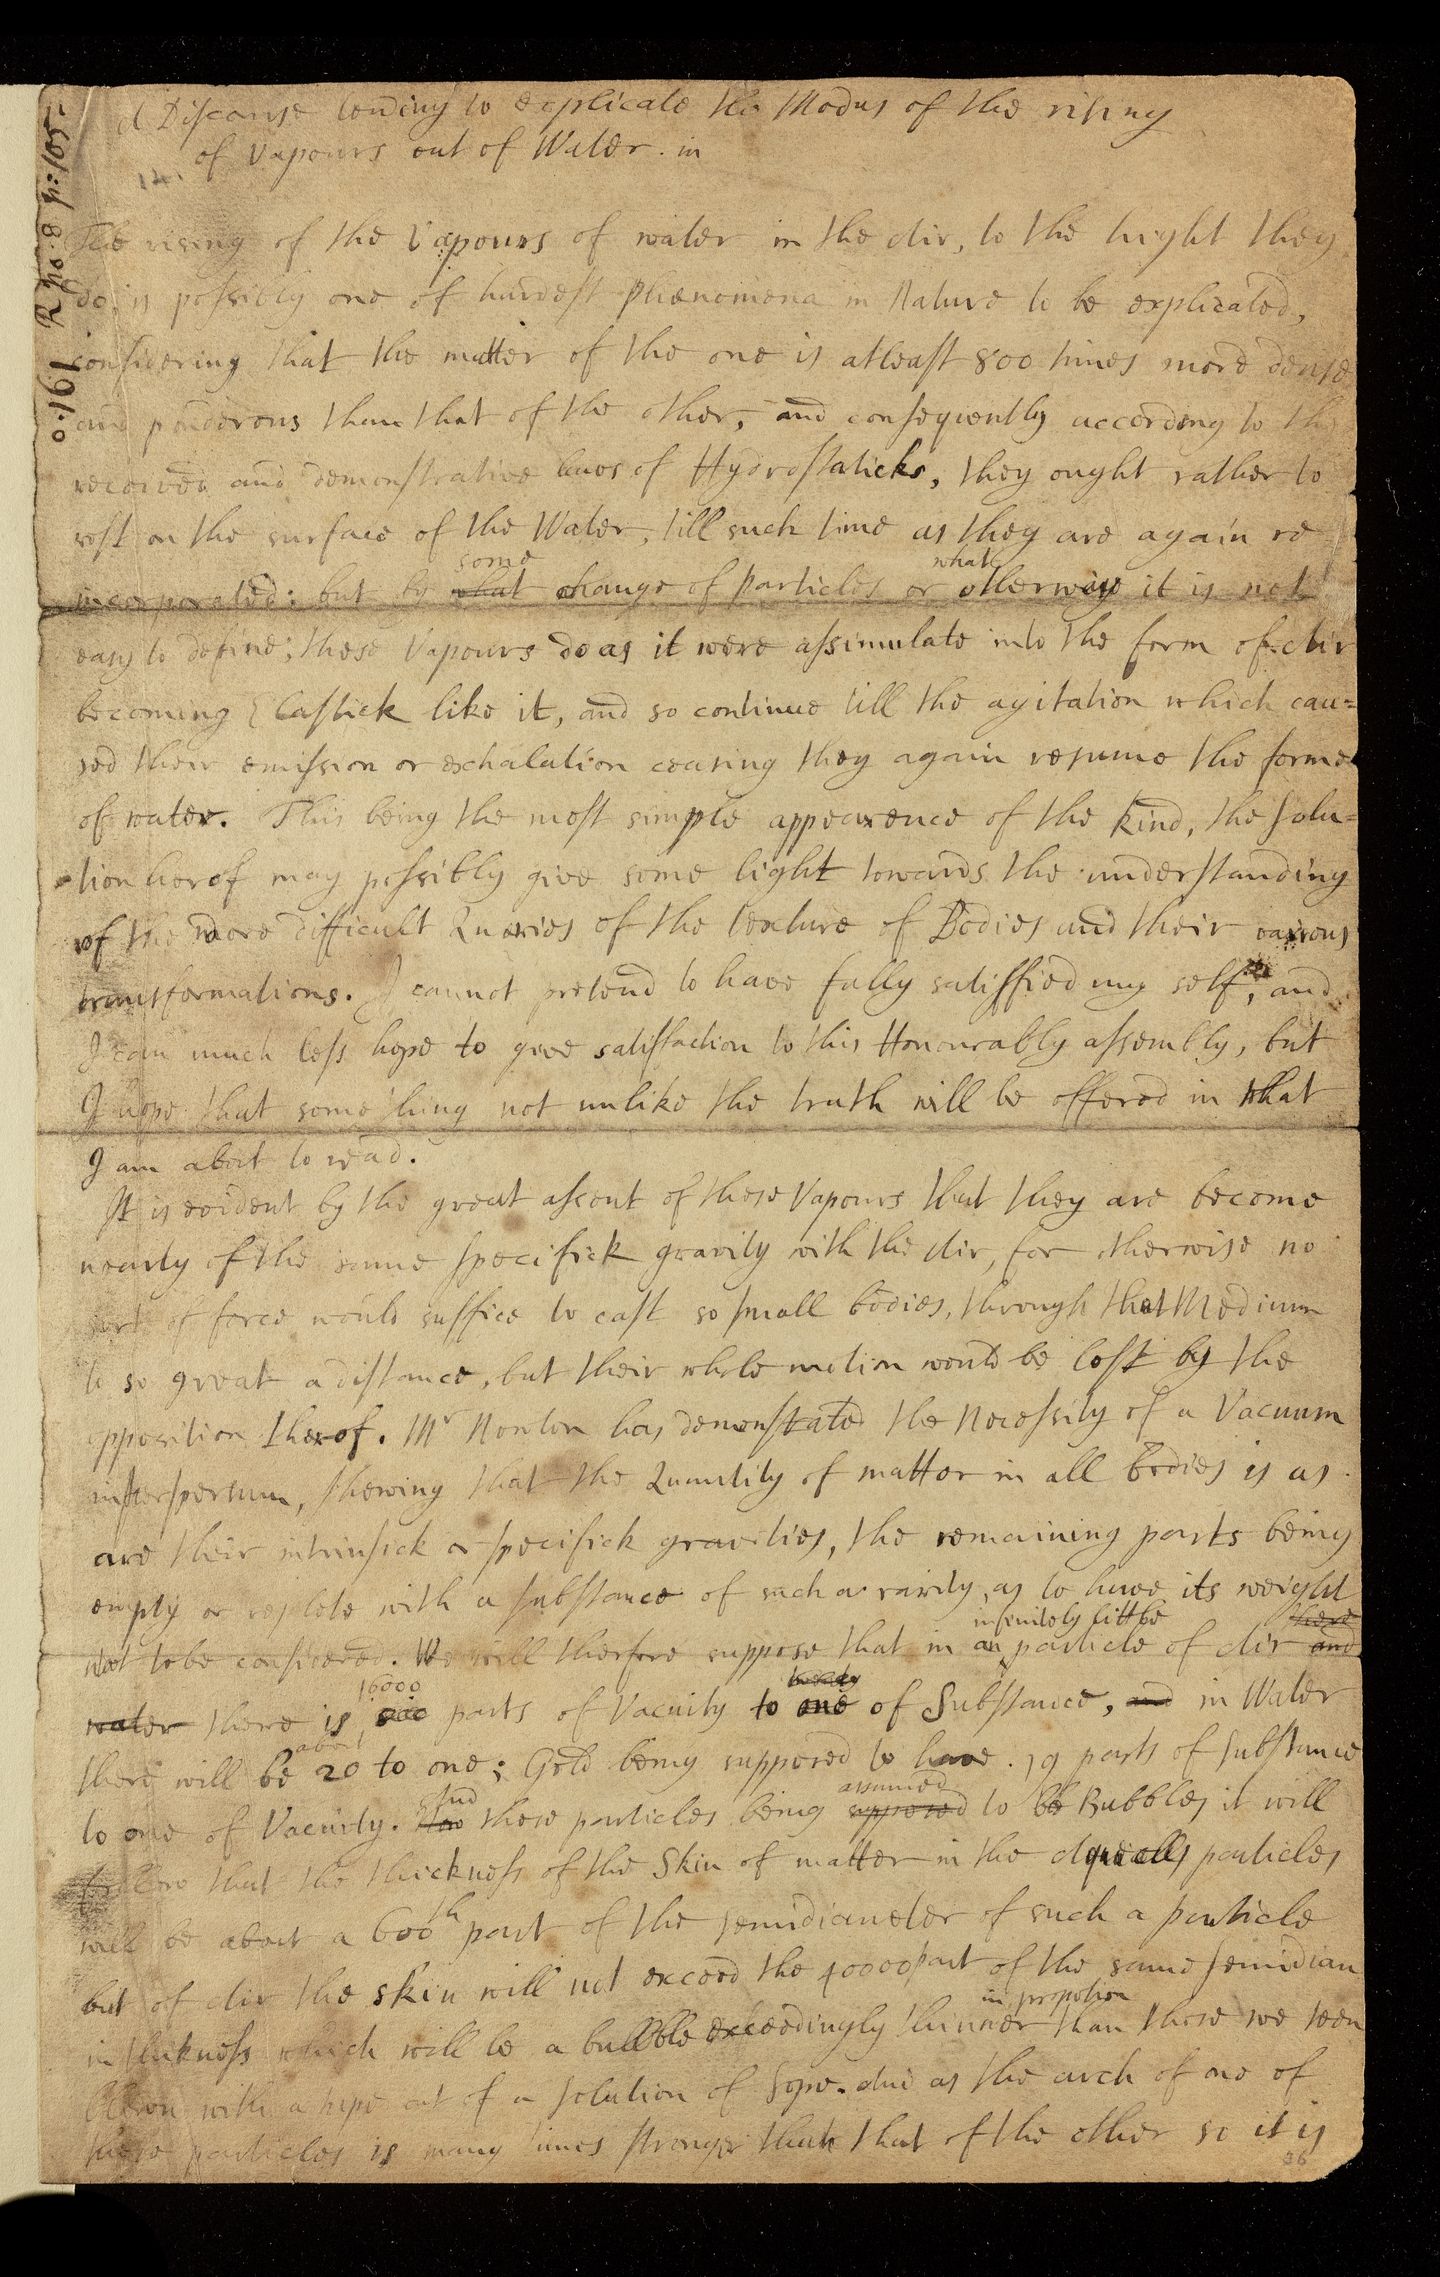 A Discourse tending to explicate the Modus of the rising
of Vapours out of Water. in
o: 161 R po: 8 p: 105
The rising of the Vapours of water in the Air, to the hight they
do, is possibly one of hardest Phænomena in Nature to be explicated,
considering that the matter of the one is atleast 800 times more dense
and ponderous than that of the other, and consequently according to the
received and demonstrative laws of Hydrostaticks, they ought rather to
rest on the surface of the Water, till such time as they are again re
some what
incorporated: but by what change of particles or otherways it is not
easy to define; these Vapours do as it were assimulate into the form of Air
becoming Elastick like it, and so continue till the agitation which cau=
sed their emission or exhalation ceasing they again resume the forme
of water. This being the most simple appearence of the kind, the Solu=
tion herof may possibly give some light towards the understanding
of the more difficult Queries of the texture of Bodies and their various
transformations. I cannot pretend to have fully satisffied my self, and
I can much less hope to give satisfaction to this Honourably assembly, but
I hope that some thing not unlike the truth will be offered in what
I am about to read.
It is evident by the great assent of these Vapours that they are become
nearly of the same specifick gravity with the Air, for otherwise no
sort of force would suffice to cast so small bodies, through that Medium
to so great a distance, but their whole motion would be lost by the
opposition therof. Mr Newton has demonstrated the Necessity of a Vacuum
interspersum, shewing that the Quantity of matter in all Bodies is as
are their intrinsick or specifick gravities, the remaining parts being
empty or replete with a substance of such a rarity, as to have its weight
infinitely little there
not to be considered. We will therfore suppose that in an particle of Air and
16000
water there is parts of Vacuity to one of Substance, and in Water
about
there will be 20 to one; Gold being supposed to have 19 parts of substance
And assumed
to one of Vacuity. these particles being supposed to be Bubbles it will
follow that the thickness of the Skin of matter in the particles
will be about a 600th part of the semidiameter of such a particle
but of Air the skin will not exceed the 40000 part of the same semidiam
in propotion
in thikness which will be a bubble exceedingly thinner than those we seen
blown with a pipe out of a solution of Sope. And as the arch of one of
these particles is many times stronger than that of the other so it is
36